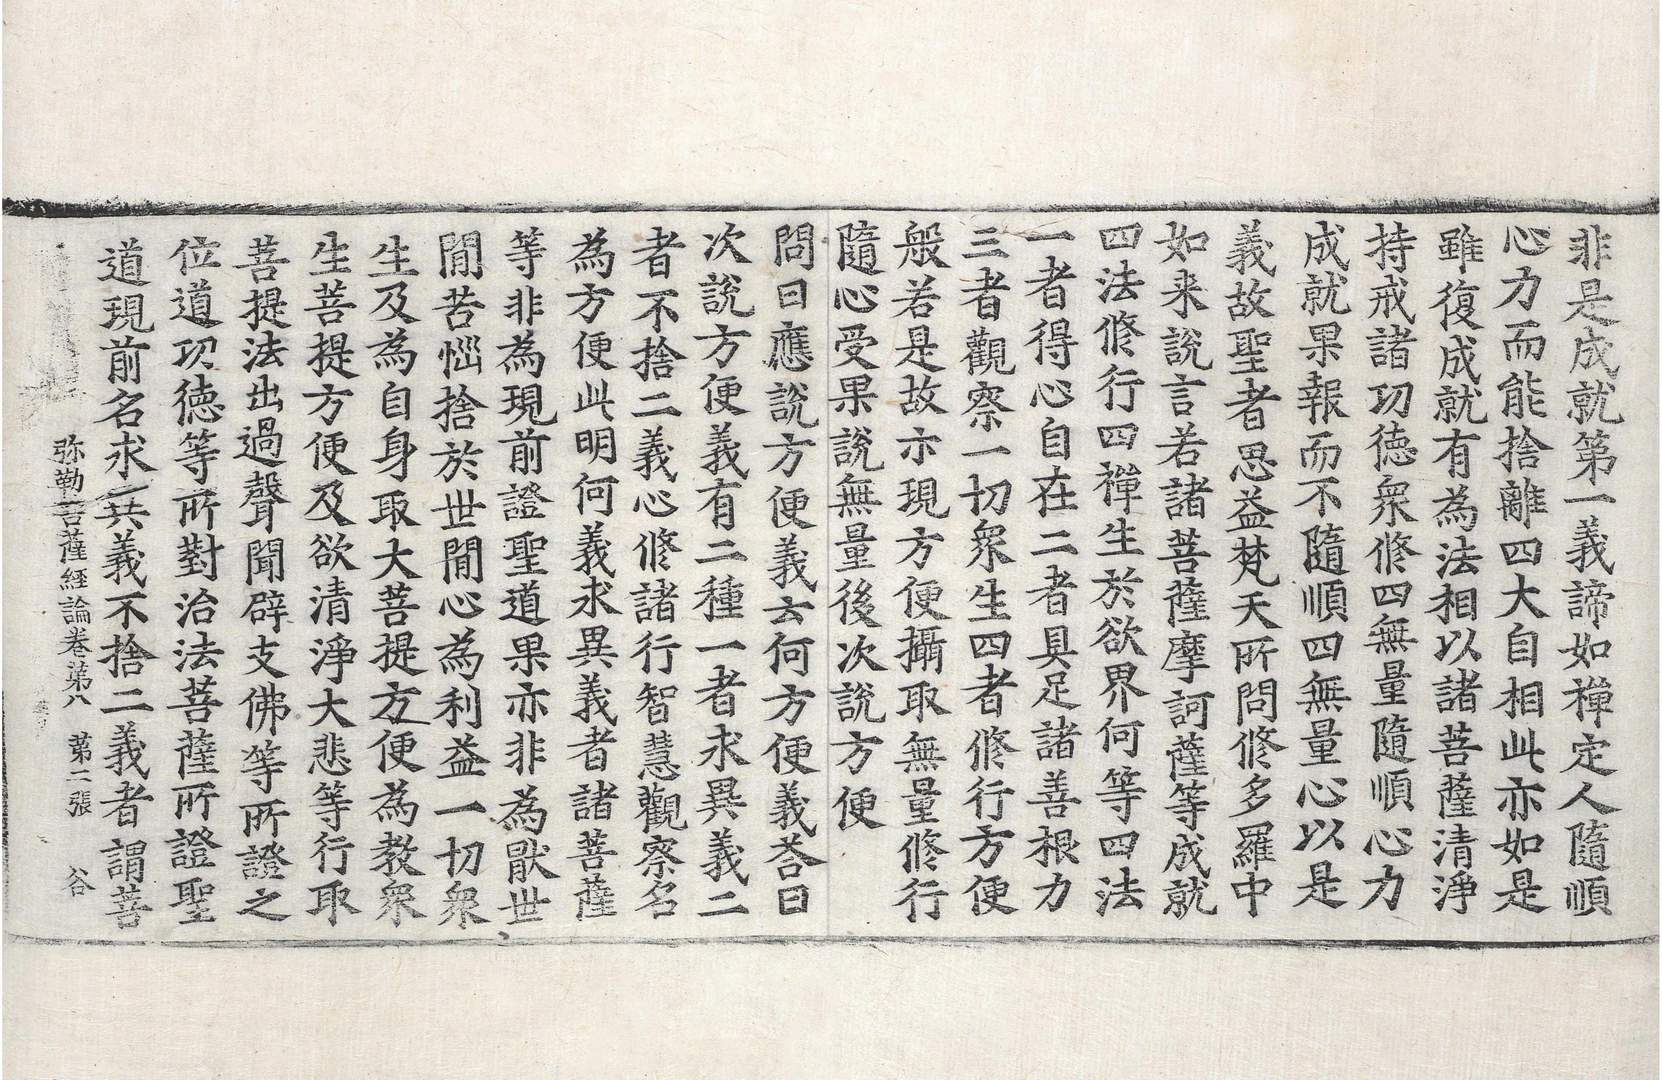 非是成就第一義諦如禪定人隨順
心力而能捨離四大自相此亦如是
雖復成就有為法相以諸菩薩清淨
持戒諸功德衆修四無量隨順心力
成就果報而不隨順四無量心以是
義故聖者思益梵天所問修多羅中
如来說言若諸菩薩摩訶薩等成就
四法修行四禪生於欲界何等四法
一者得心自在二者具足諸善根力
三者觀察一切衆生四者修行方便
般若是故示現方便攝取無量修行
隨心受果說無量後次說方便
問曰應說方便義云何方便義荅曰
次說方便義有二種一者求異義二
者不捨二義心修諸行智慧觀察名
為方便此明何義求異義者諸菩薩
等非為現前證聖道果亦非為猒世
閒苦惱捨於世閒心為利益一切衆
生及為自身取大菩提方便為教衆
生菩提方便及欲清淨大悲等行取
菩提法出過聲聞辟支佛等所證之
位道功德等所對治法菩薩所證聖
道現前名求共義不捨二義者謂菩
弥勒菩薩經論卷第八 第二張 谷